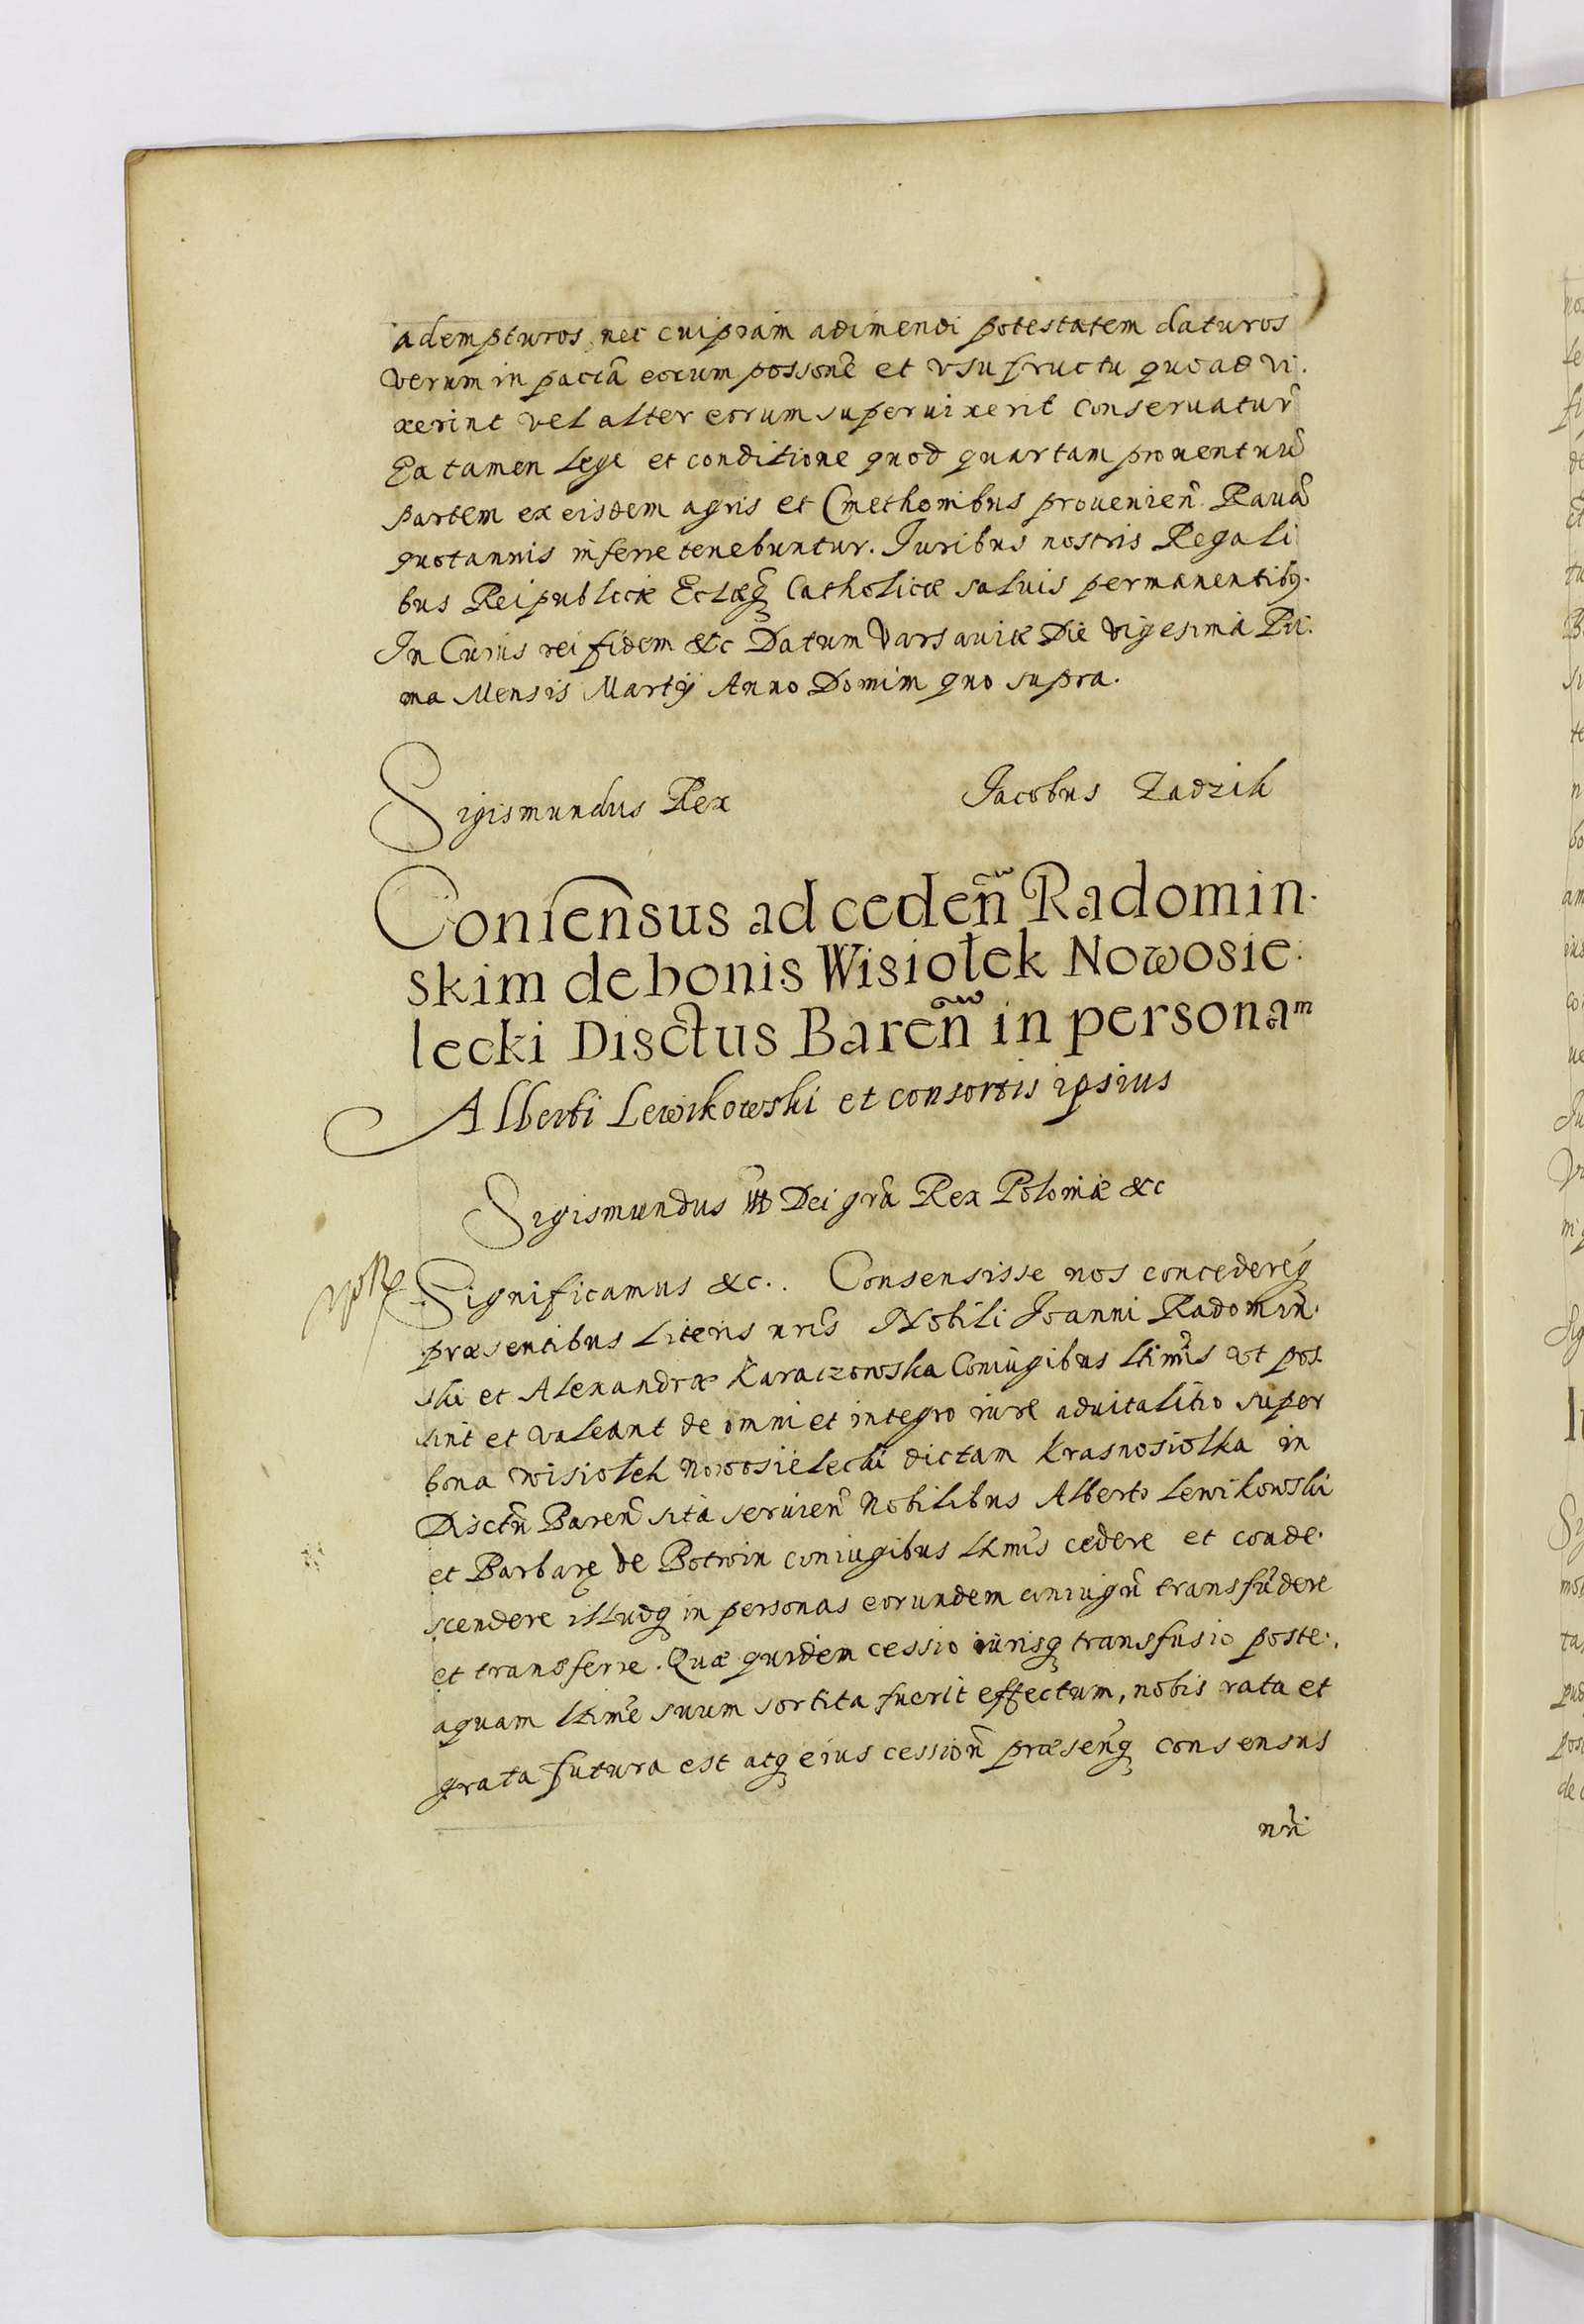 adempturos nec cuipiam adimendi potestatem daturos
verum in paccã eorum possonẽ et vsufructu quoad vi.
xerint vel alter eorum superuixerit conseruatur̃
Ea tamen lege et conditione quod quartam prouentuũ
partem ex eisdem agris et Cmethonibus prouenieñ Rauã
quotannis inferre tenebuntur. Juribus nostris Regali
bus Reipublicæ Eclæq̃ Catholicæ saluis permanentibꝫ.
In Cuius rei fidem &c Datum Varsauiæ Die Vigesima Pri.
ma Mensis Martij Anno Domini quo supra.
Sigismundus Rex Jacobus Zadzik
Consensus ad cedeñ Radomin.
skim de bonis Wisiołek Nowosie.
lecki Disctus Bareñ in personam
Alberti Lewikowski et consortis ipsius
Sigismundus Dei grã Rex Poloniæ &c
Significamus &c.. Consensisse nos concedereq́
præsentibus literis nrĩs Nobili Joanni Radomiñ.
ski et Alexandræ Karaczowska Coniugibus ltimĩs vt pos
sint et valeant de omni et integro iure aduitalitio super
bona wisiołek Nowosielecki dictam Krasnosiołka in
Disctũ Bareñ sita seruieñ Nobilibus Alberto Lewikowski
et Barbaræ de Botwin coniugibus ltmĩs cedere et conde.
scendere illudq̃ in personas eorundem coniugũ transfũdere
et transferre. Quæ quidem cessio iurisq̃ transfusio poste.
aquam ltimẽ suum sortita fuerit effectum, nobis rata et
grata futura est atq̃ eius cessioñ præseñq̃ consensus
nrĩ